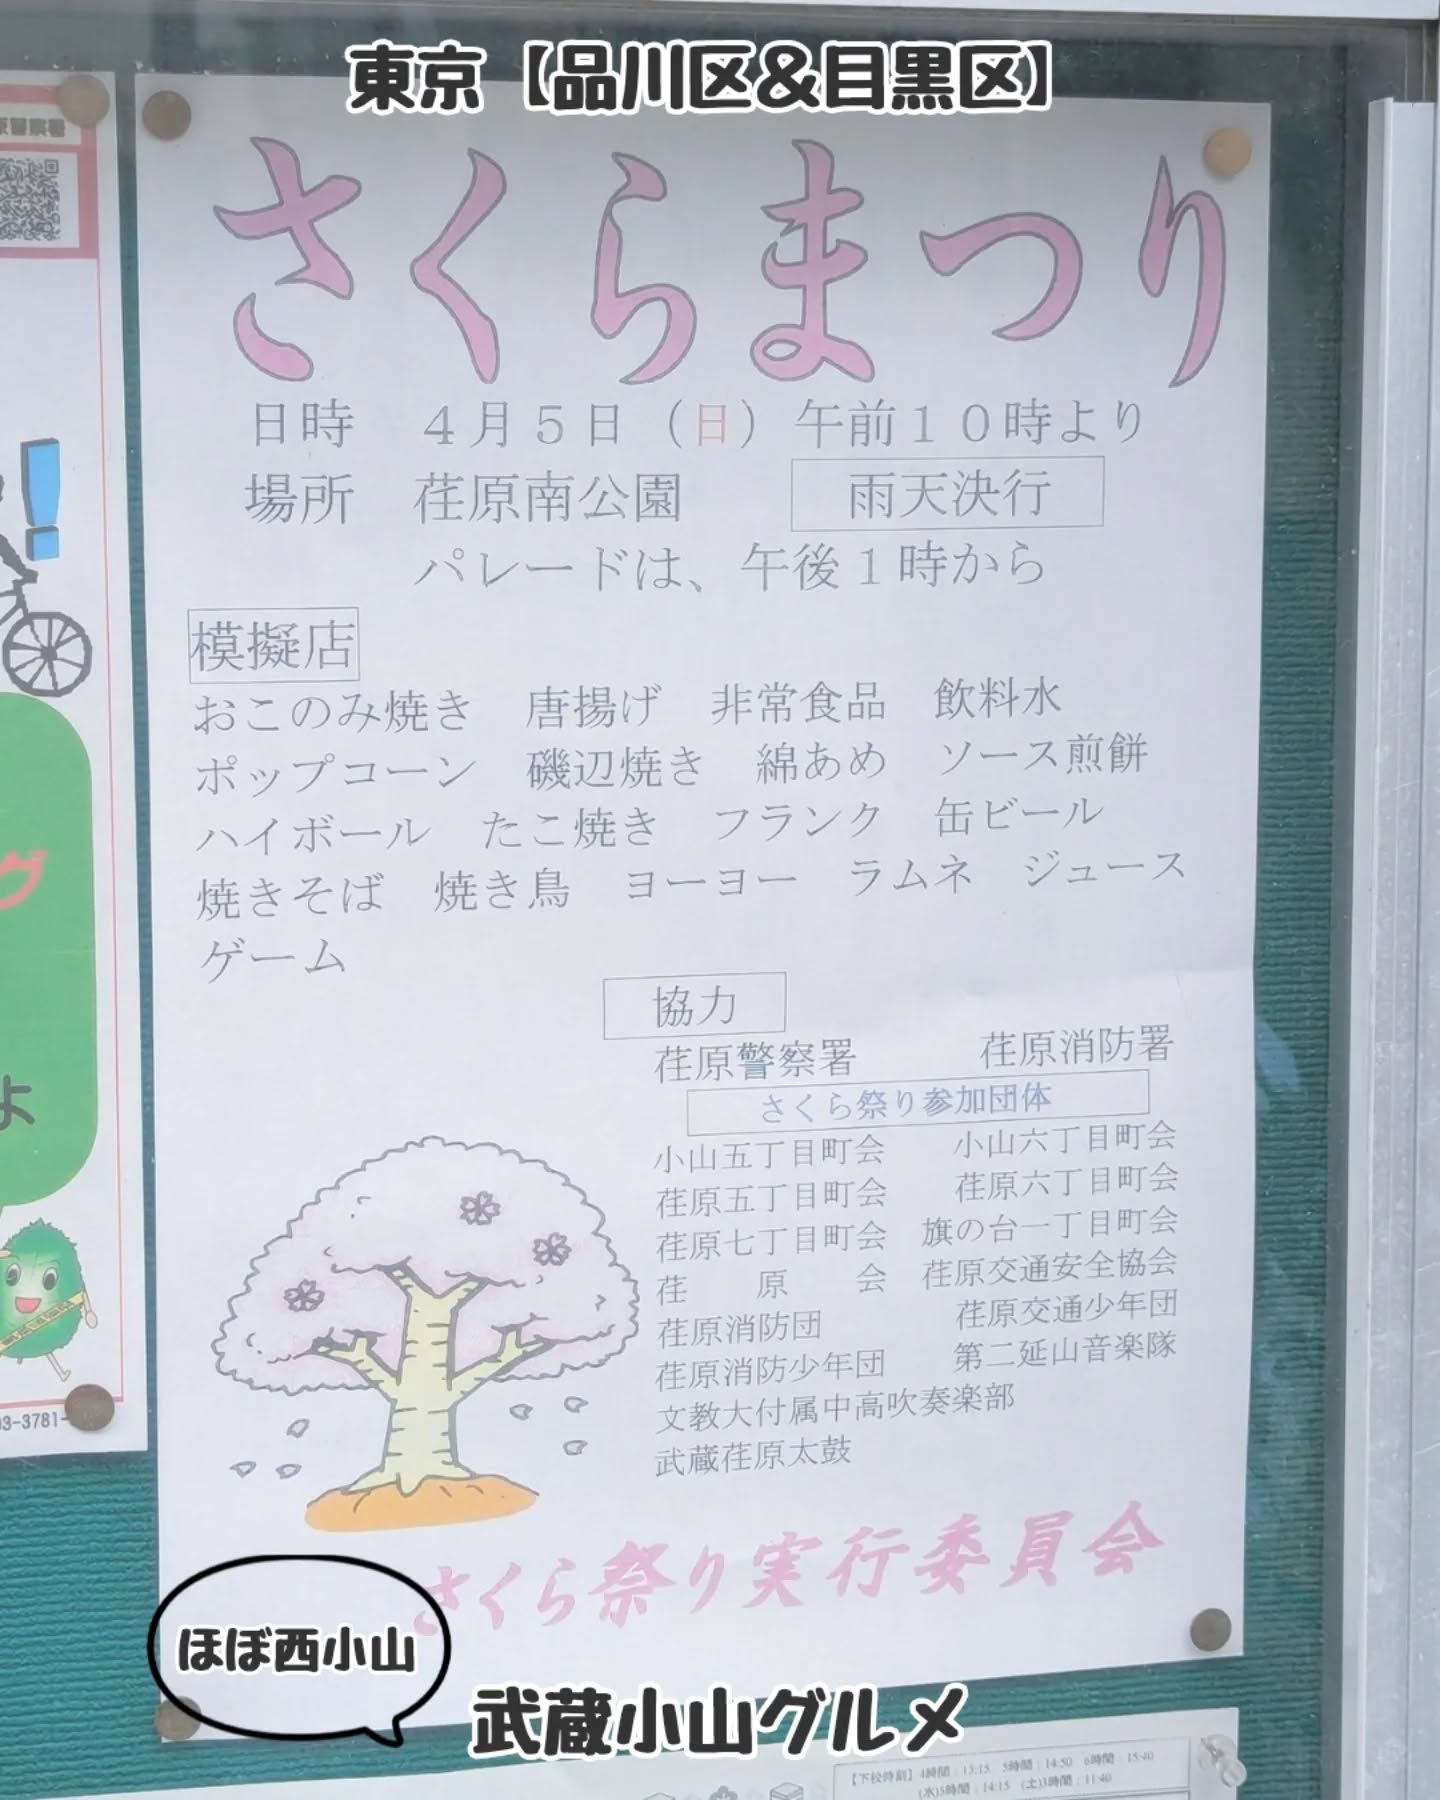 東京【品川区&目黒区】
さくらまつり
日時　4月5日（日）午前10時より
場所　荏原南公園　雨天決行
パレードは、午後1時から
模擬店
おこのみ焼き　唐揚げ　非常食品　飲料水
ポップコーン　磯辺焼き　綿あめ　ソース煎餅
ハイボール　たこ焼き　フランク　缶ビール
焼きそば　焼き鳥　ヨーヨー　ラムネ　ジュース
ゲーム
協力
荏原警察署　荏原消防署
さくら祭り参加団体
小山五丁目町会　小山六丁目町会
荏原五丁目町会　荏原六丁目町会
荏原七丁目町会　旗の台一丁目町会
荏原会　荏原交通安全協会
荏原消防団　荏原交通少年団
荏原消防少年団　第二延山音楽隊
文教大付属中高吹奏楽部
武蔵荏原太鼓
さくら祭り実行委員会
ほぼ西小山
武蔵小山グルメ
警察署
!
グ
よ
03-3781-
【下校時刻】4時間：13:15　5時間：14:50　6時間：15:40
(水)5時間：14:15　(土)3時間：11:40